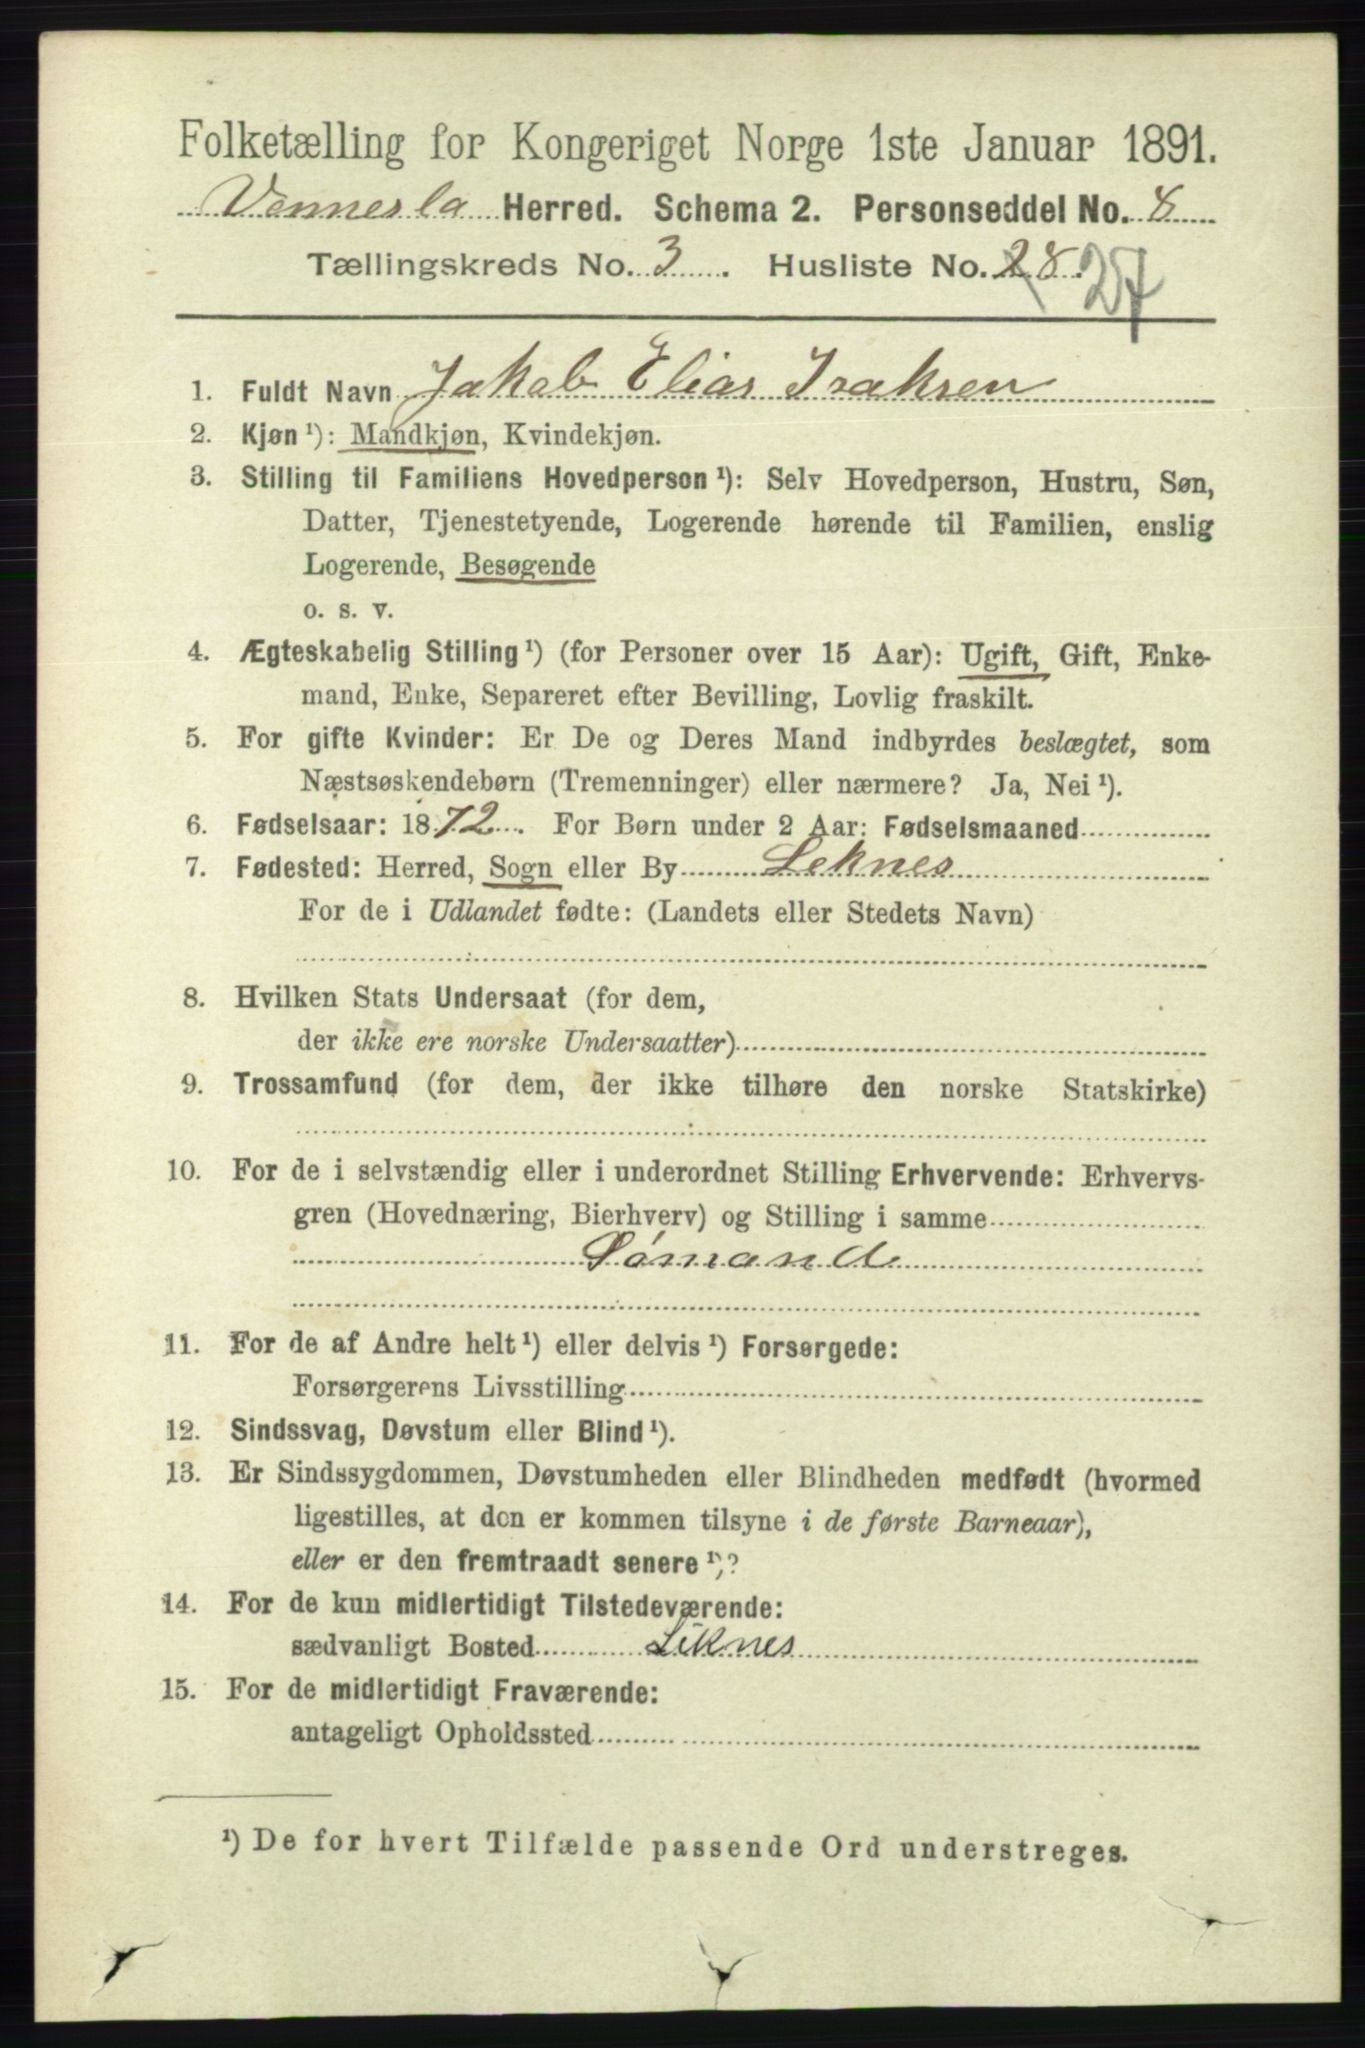 Folketælling for Kongeriget Norge 1ste Januar 1891.
Vennesla Herred. Schema 2. Personseddel No. 8
Tællingskreds No. 3. Husliste No. 28. 27
1. Fuldt Navn Jakob Elias Isaksen
2. Kjøn ¹): Mandkjøn, Kvindekjøn.
3. Stilling til Familiens Hovedperson ¹): Selv Hovedperson, Hustru, Søn,
Datter, Tjenestetyende, Logerende hørende til Familien, enslig
Logerende, Besøgende
o. s. v.
4. Ægteskabelig Stilling ¹) (for Personer over 15 Aar): Ugift, Gift, Enke-
mand, Enke, Separeret efter Bevilling, Lovlig fraskilt.
5. For gifte Kvinder: Er De og Deres Mand indbyrdes beslægtet, som
Næstsøskendebørn (Tremenninger) eller nærmere? Ja, Nei ¹).
6. Fødselsaar: 1872. For Børn under 2 Aar: Fødselsmaaned
7. Fødested: Herred, Sogn eller By Leknes
For de i Udlandet fødte: (Landets eller Stedets Navn)
8. Hvilken Stats Undersaat (for dem,
der ikke ere norske Undersaatter)
9. Trossamfund (for dem, der ikke tilhøre den norske Statskirke)
10. For de i selvstændig eller i underordnet Stilling Erhvervende: Erhvervs-
gren (Hovednæring, Bierhverv) og Stilling i samme
Sømand
11. For de af Andre helt ¹) eller delvis ¹) Forsørgede:
Forsørgerens Livsstilling
12. Sindssvag, Døvstum eller Blind ¹).
13. Er Sindssygdommen, Døvstumheden eller Blindheden medfødt (hvormed
ligestilles, at den er kommen tilsyne i de første Barneaar),
eller er den fremtraadt senere ¹)?
14. For de kun midlertidigt Tilstedeværende:
sædvanligt Bosted Liknes
15. For de midlertidigt Fraværende:
antageligt Opholdssted
¹) De for hvert Tilfælde passende Ord understreges.